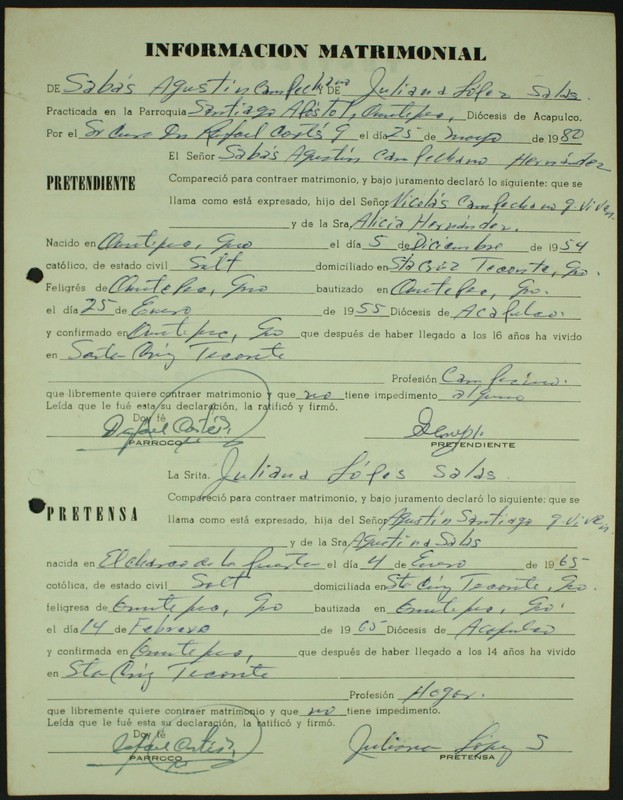 INFORMACION MATRIMONIAL
DE Sabás Agustin Campechano Y DE Juliana López Salas.
Practicada en la Parroquia Santiago Apóstol, Ometepec, Diócesis de Acapulco.
Por el Sr Cura Dn Rafael Cortés G el día 25 de mayo de 1980
El Señor Sabás Agustín Campechano Hernández
PRETENDIENTE
Compareció para contraer matrimonio, y bajo juramento declaró lo siguiente: que se
llama como está expresado, hijo del Señor Nicolás Campechano q. viven.
y de la Sra. Alicia Hernández.
Nacido en Ometepec, Gro el día 5 de Diciembre de 1954
católico, de estado civil Solt domiciliado en Sta Cruz Teconte, Gro.
Feligrés de Ometepec, Gro bautizado en Ometepec, Gro.
el día 25 de Enero de 1955 Diócesis de Acapulco.
y confirmado en Ometepec, Gro que después de haber llegado a los 16 años ha vivido
en Santa Cruz Teconte
Profesión Campesino.
que libremente quiere contraer matrimonio y que no tiene impedimento alguno
Leída que le fué esta su declaración, la ratificó y firmó.
Doy fé
Rafael Cortés G
PARROCO
PRETENDIENTE
La Srita. Juliana López Salas.
PRETENSA
Compareció para contraer matrimonio, y bajo juramento declaró lo siguiente: que se
llama como está expresado, hija del Señor Agustín Santiago q. viven.
y de la Sra. Agustina Salas
nacida en El charco de la Puerta el día 4 de Enero de 1965
cotólica, de estado civil Solt domiciliada en Sta Cruz Teconte, Gro.
feligresa de Ometepec, Gro bautizada en Ometepec, Gro.
el día 14 de Febrero de 1965 Diócesis de Acapulco
y confirmada en Ometepec, que después de haber llegado a los 14 años ha vivido
en Sta Cruz Teconte
Profesión Hogar.
que libremente quiere contraer matrimonio y que no tiene impedimento.
Leída que le fué esta su declaración, la ratificó y firmó.
Doy fé
Rafael Cortés G
PARROCO
Juliana López S
PRETENSA